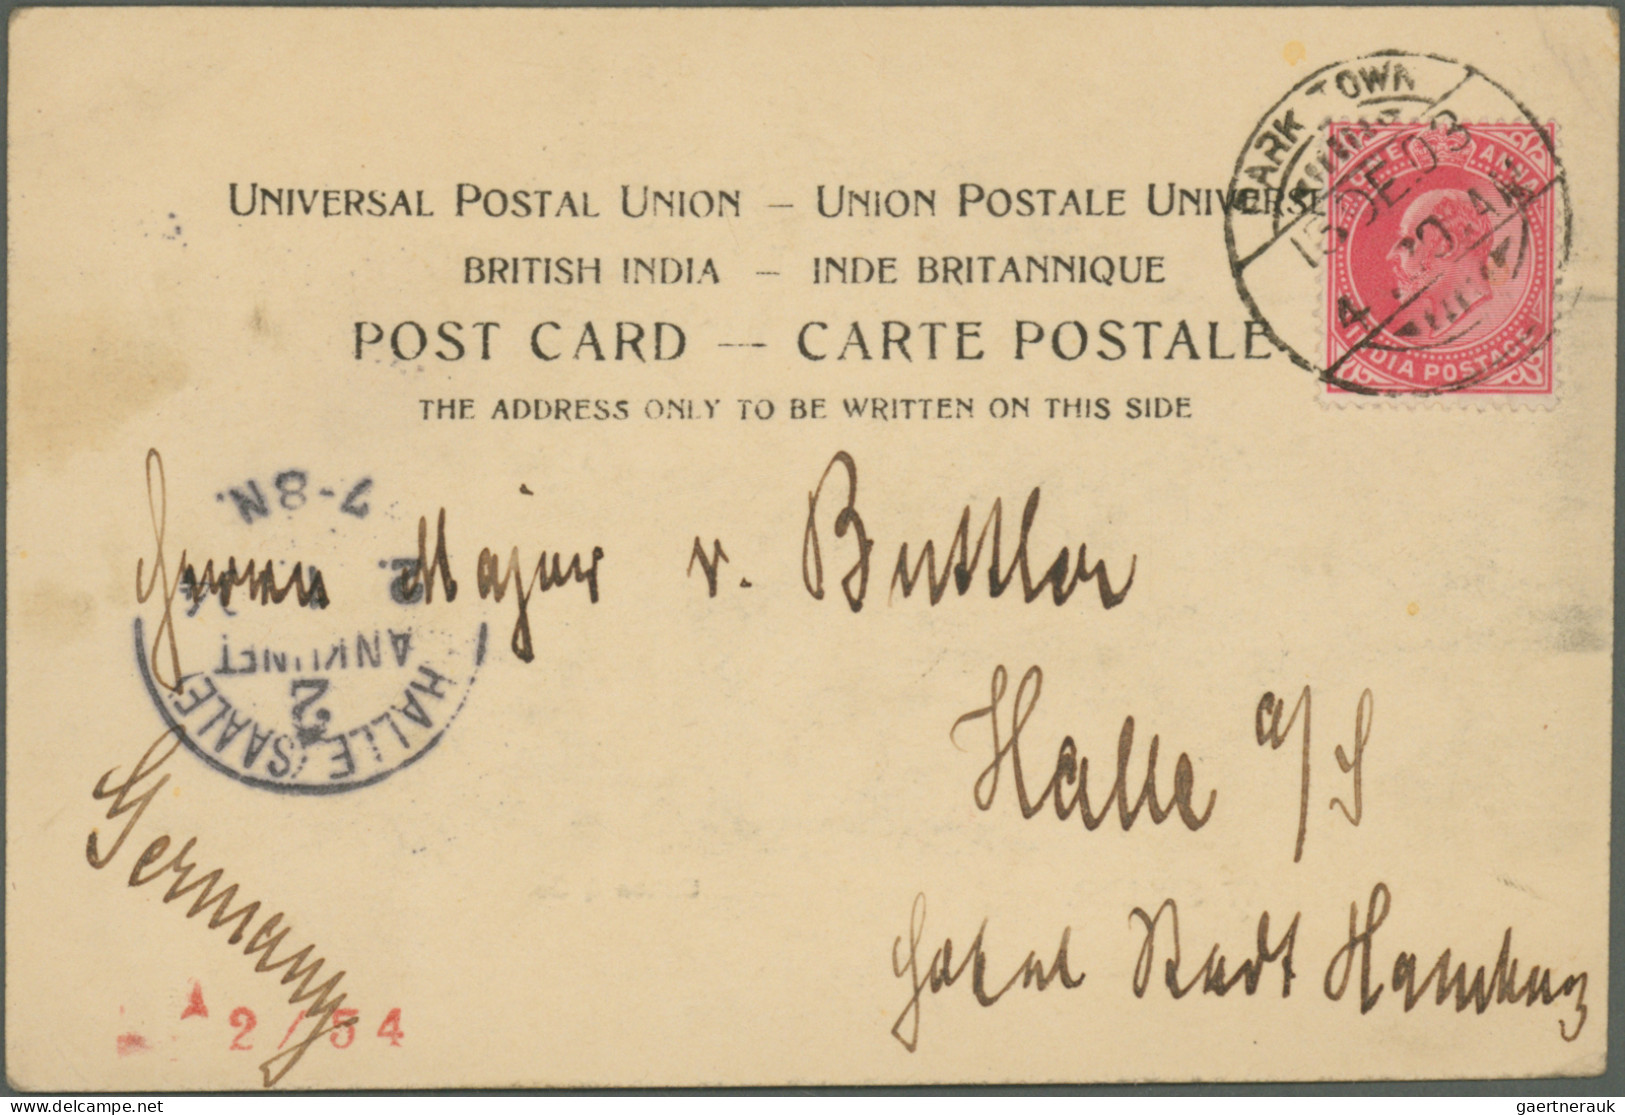 UNIVERSAL POSTAL UNION — UNION POSTALE UNIVERS
BRITISH INDIA — INDE BRITANNIQUE
POST CARD — CARTE POSTALE
THE ADDRESS ONLY TO BE WRITTEN ON THIS SIDE
PARK TOWN
DE.03
ANNA
INDIA POSTAGE
7-8N.
ANKUNFT
2
HALLE (SAALE)
Herrn Major v. Buttler
Halle a/S
Hotel Stadt Hamburg
Germany
2/54
delcampe.net
gaertnerauk